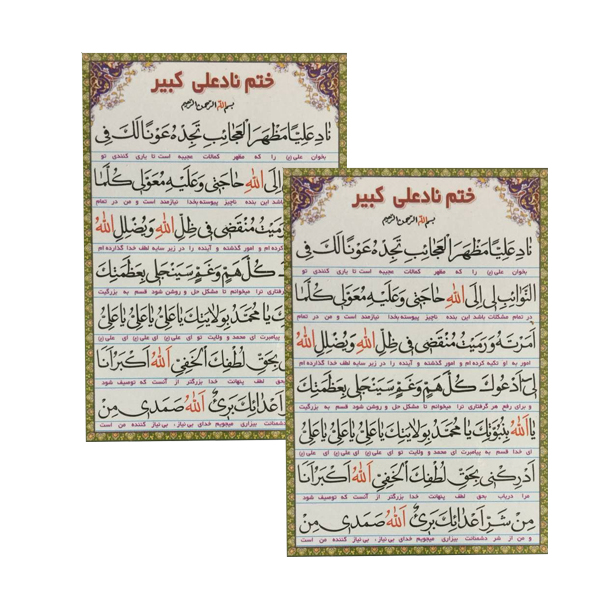 ختم نادعلی کبیر
بسم الله الرحمن الرحیم
نادِ عَلِیًّا مَظْهَرَ الْعَجَائِبِ تَجِدْهُ عَوْنًا لَكَ فِی
بخوان علی (ع) را که مظهر کمالات عجیبه است تا یاری کنندی تو
إِلَی اللهِ حَاجَتِی وَعَلَیْهِ مُعَوَّلِی كُلَّمَا
باشد این بنده ناچیز پیوسته بخدا نیازمند است و من در تمام
رَمَیْتَ مُنْقَضِی فِی ظِلِّ اللهِ وَیُضْلِلِ اللهُ
کرده ام و امور گذشته و آینده را در زیر سایه لطف خدا گذارده ام
كُلَّ هَمٍّ وَغَمٍّ سَیَنْجَلِی بِعَظَمَتِكَ
گرفتاری ترا میخوانم تا مشکل حل و روشن شود قسم به بزرگیت
یَا مُحَمَّدُ بِوَلَایَتِكَ یَا عَلِیُّ یَا عَلِیُّ یَا عَلِیُّ
پیامبرت ای محمد و ولایت تو ای علی (ع) ای علی (ع)
بِحَقِّ لُطْفِكَ الْخَفِیِّ اَللهُ اَكْبَرُ اَنَا
بحق لطف پنهانت خدا بزرگتر از آنست که توصیف شود
اَعْدَائِكَ بَرِیءٌ اَللهُ صَمَدِی مِنْ
دشمنانت بیزاری میجویم خدای بی نیاز، بی نیاز کننده من است
ختم نادعلی کبیر
بسم الله الرحمن الرحیم
نادِ عَلِیًّا مَظْهَرَ الْعَجَائِبِ تَجِدْهُ عَوْنًا لَكَ فِی
بخوان علی (ع) را که مظهر کمالات عجیبه است تا یاری کنندی تو
النَّوَائِبِ لِی إِلَی اللهِ حَاجَتِی وَعَلَیْهِ مُعَوَّلِی كُلَّمَا
در تمام مشکلات باشد این بنده ناچیز پیوسته بخدا نیازمند است و من در تمام
اَمَرْتَهُ وَرَمَیْتَ مُنْقَضِی فِی ظِلِّ اللهِ وَیُضْلِلِ اللهُ
امور به او تکیه کرده ام و امور گذشته و آینده را در زیر سایه لطف خدا گذارده ام
لِی اَدْعُوكَ كُلَّ هَمٍّ وَغَمٍّ سَیَنْجَلِی بِعَظَمَتِكَ
و برای رفع هر گرفتاری ترا میخوانم تا مشکل حل و روشن شود قسم به بزرگیت
یَا اَللهُ بِنُبُوَّتِكَ یَا مُحَمَّدُ بِوَلَایَتِكَ یَا عَلِیُّ یَا عَلِیُّ یَا عَلِیُّ
ای خدا قسم به پیامبرت ای محمد و ولایت تو ای علی (ع) ای علی (ع) ای علی (ع)
اَدْرِكْنِی بِحَقِّ لُطْفِكَ الْخَفِیِّ اَللهُ اَكْبَرُ اَنَا
مرا دریاب بحق لطف پنهانت خدا بزرگتر از آنست که توصیف شود
مِنْ شَرِّ اَعْدَائِكَ بَرِیءٌ اَللهُ صَمَدِی مِنْ
و من از شر دشمنانت بیزاری میجویم خدای بی نیاز، بی نیاز کننده من است